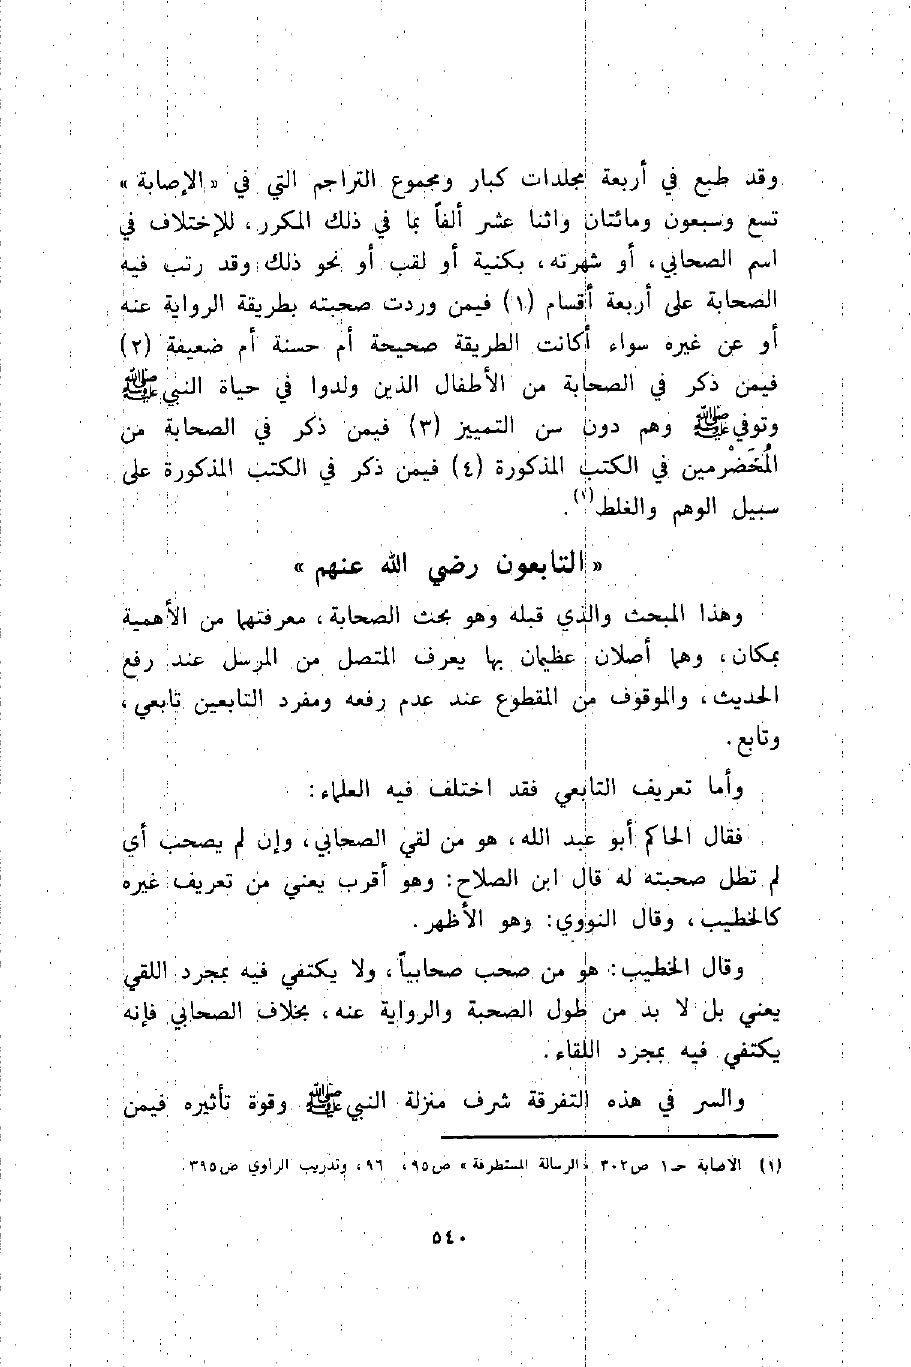 وقد طبع في أربعة مجلدات كبار ومجموع التراجم التي في « الإصابة »
تسع وسبعون ومائتان واثنا عشر ألفاً بما في ذلك المكرر، للإختلاف في
اسم الصحابي، أو شهرته، بكنية أو لقب أو نحو ذلك وقد رتب فيه
الصحابة على أربعة أقسام (١) فيمن وردت صحبته بطريقة الرواية عنه
أو عن غيره سواء أكانت الطريقة صحيحة أم حسنة أم ضعيفة (٢)
فيمن ذكر في الصحابة من الأطفال الذين ولدوا في حياة النبي ﷺ
وتوفي ﷺ وهم دون سن التمييز (٣) فيمن ذكر في الصحابة من
المُخَضْرمين في الكتب المذكورة (٤) فيمن ذكر في الكتب المذكورة على
سبيل الوهم والغلط(١).
« التابعون رضي الله عنهم »
وهذا المبحث والذي قبله وهو بحث الصحابة، معرفتهما من الأهمية
بمكان، وهما أصلان عظيمان بها يعرف المتصل من المرسل عند رفع
الحديث، والموقوف من المقطوع عند عدم رفعه ومفرد التابعين تابعي،
وتابع.
وأما تعريف التابعي فقد اختلف فيه العلماء:
فقال الحاكم أبو عبد الله، هو من لقي الصحابي، وإن لم يصحب أي
لم تطل صحبته له قال ابن الصلاح: وهو أقرب يعني من تعريف غيره
كالخطيب، وقال النووي: وهو الأظهر.
وقال الخطيب: هو من صحب صحابياً، ولا يكتفي فيه بمجرد اللقي
يعني بل لا بد من طول الصحبة والرواية عنه، بخلاف الصحابي فإنه
يكتفي فيه بمجرد اللقاء.
والسر في هذه التفرقة شرف منزلة النبي ﷺ وقوة تأثيره فيمن
(١) الاصابة حـ١ ص٣٠٢ «الرسالة المستطرفة» ص٩٥، ٩٦، وتدريب الراوي ص٣٩٥.
٥٤٠